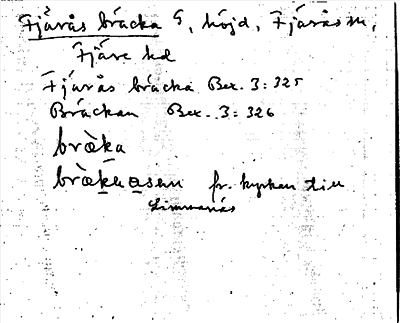 Fjärås bräcka S, höjd, Fjärås sn,
Fjäre hd
Fjärås bräcka Bex. 3:325
Bräckan Bex. 3:326
bræ̀ka
bræ̀kaasen fr. kyrkan till
Limmanäs